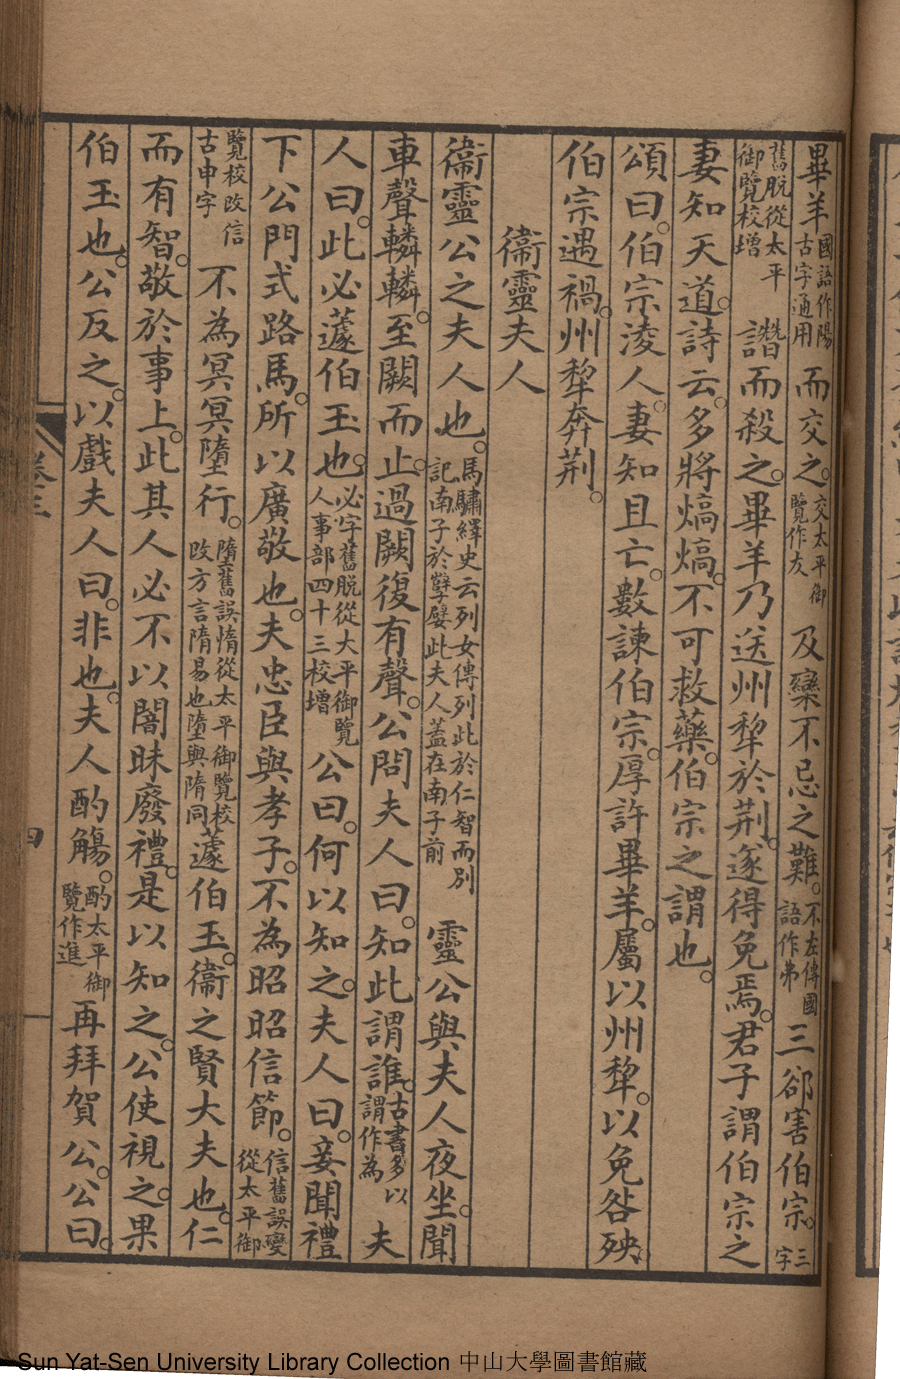 畢羊國語作陽古字通用而交之。交太平御覽作友及欒不忌之難。不左傳國語作弗三郤害伯宗。三字
舊脫從太平御覽校增譖而殺之。畢羊乃送州犂於荆。遂得免焉。君子謂伯宗之
妻知天道。詩云。多將熇熇。不可救藥。伯宗之謂也。
頌曰。伯宗淩人。妻知且亡。數諫伯宗。厚許畢羊。屬以州犂。以免咎殃。
伯宗遇禍。州犂奔荆。
衞靈夫人
衞靈公之夫人也。馬驌繹史云列女傳列此於仁智而別記南子於孽嬖此夫人蓋在南子前靈公與夫人夜坐。聞
車聲轔轔。至闕而止。過闕復有聲。公問夫人曰。知此謂誰。古書多以謂作為夫
人曰。此必蘧伯玉也。必字舊脫從太平御覽人事部四十三校增公曰。何以知之。夫人曰。妾聞禮
下公門式路馬。所以廣敬也。夫忠臣與孝子。不為昭昭信節。信舊誤變從太平御
覽校改信古申字不為冥冥墮行。墮舊誤惰從太平御覽校改方言隋易也墮與隋同蘧伯玉。衞之賢大夫也。仁
而有智。敬於事上。此其人必不以闇昧廢禮。是以知之。公使視之。果
伯玉也。公反之。以戲夫人曰。非也。夫人酌觴。酌太平御覽作進再拜賀公。公曰。
卷三
四
Sun Yat-Sen University Library Collection 中山大學圖書館藏